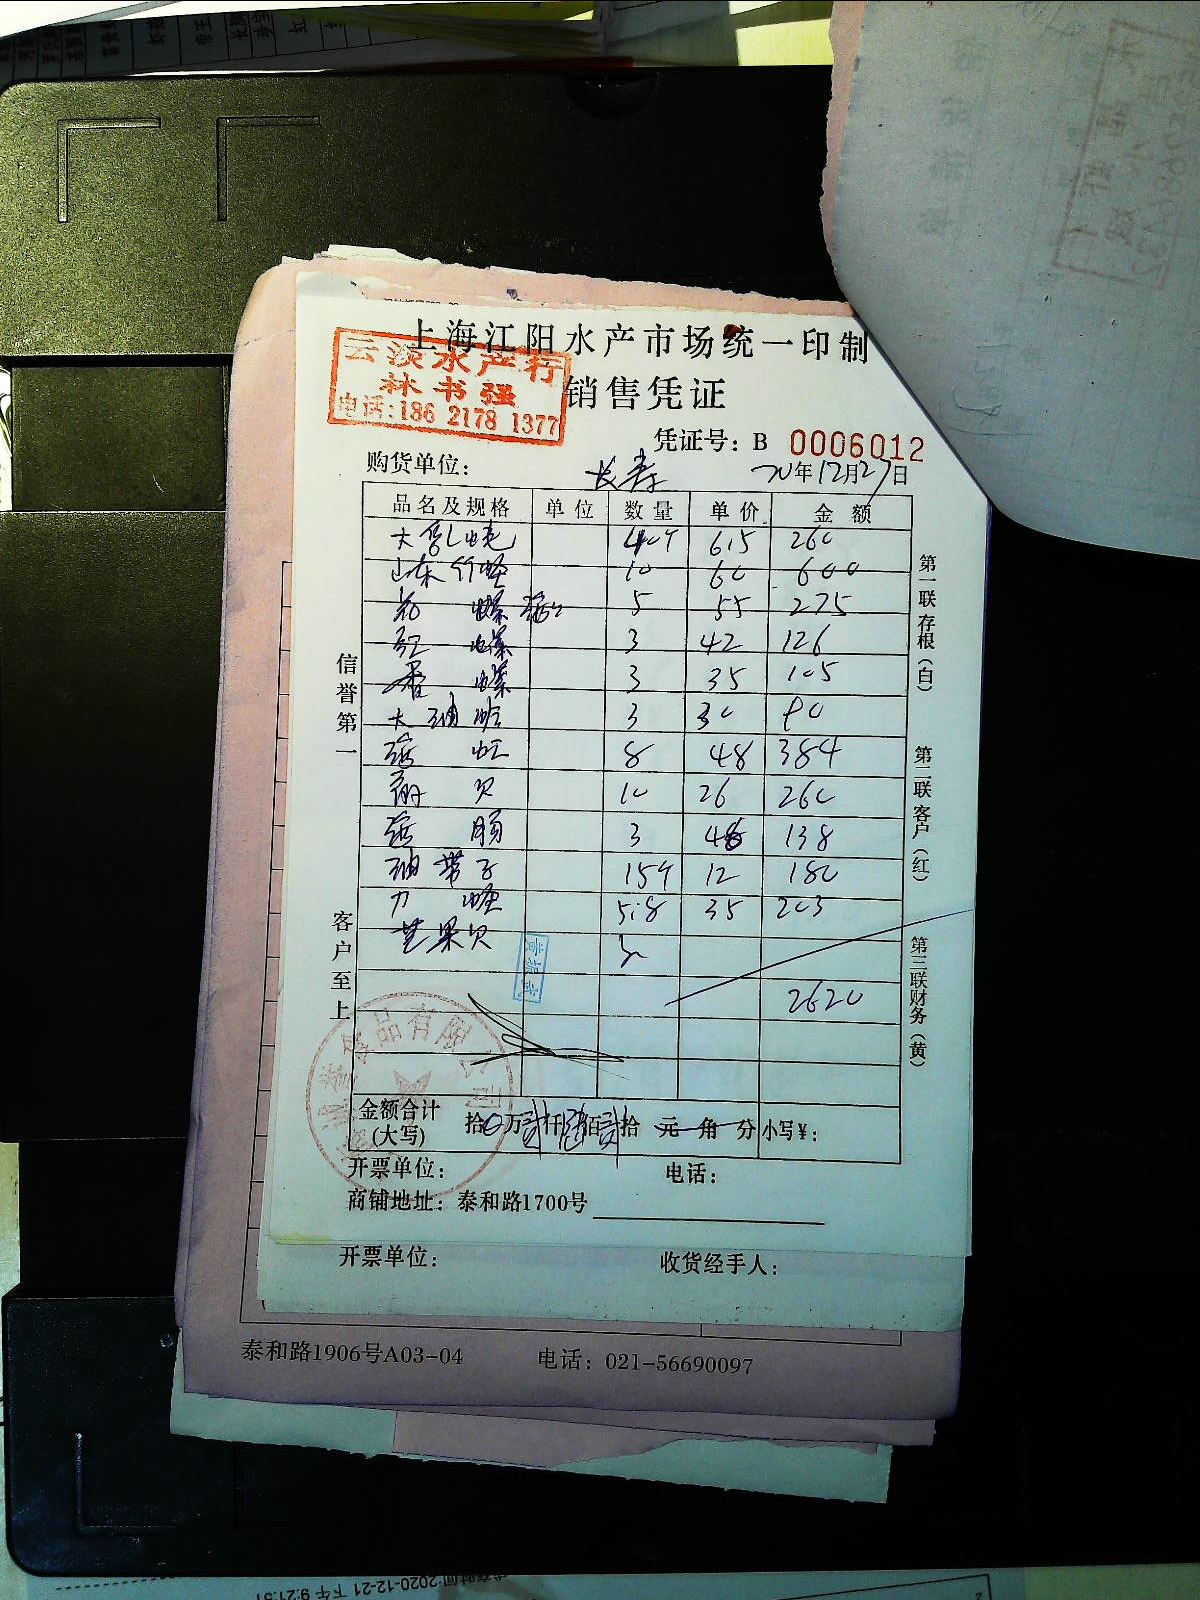 上海江阳水产市场统一印制
云淡水产行
林书强
电话:186 2178 1377
销售凭证
凭证号: B 0006012
购货单位: 长寿 20年12月27日
品名及规格 单位 数量 单价 金额
大 40斤 6.5 260
山东 蛏 10 60 600
花 螺 5 55 275
红 螺 3 42 126
香 螺 3 35 105
大 油 蛤 3 30 90
8 48 384
贝 10 26 260
肠 3 46 138
油 带子 15斤 12 180
刀 蛏 5.8 35 203
芒果贝 3
2620
黄振武
食品有限公司
金额合计
(大写) 拾 0 万 贰 仟 陆 佰 贰 拾 元 角 分 小写¥:
开票单位: 电话:
商铺地址: 泰和路1700号
信誉第一
客户至上
第一联存根(白)
第二联客户(红)
第三联财务(黄)
开票单位: 收货经手人:
泰和路1906号A03-04 电话: 021-56690097
时间:2020-12-21 下午 9:21:51